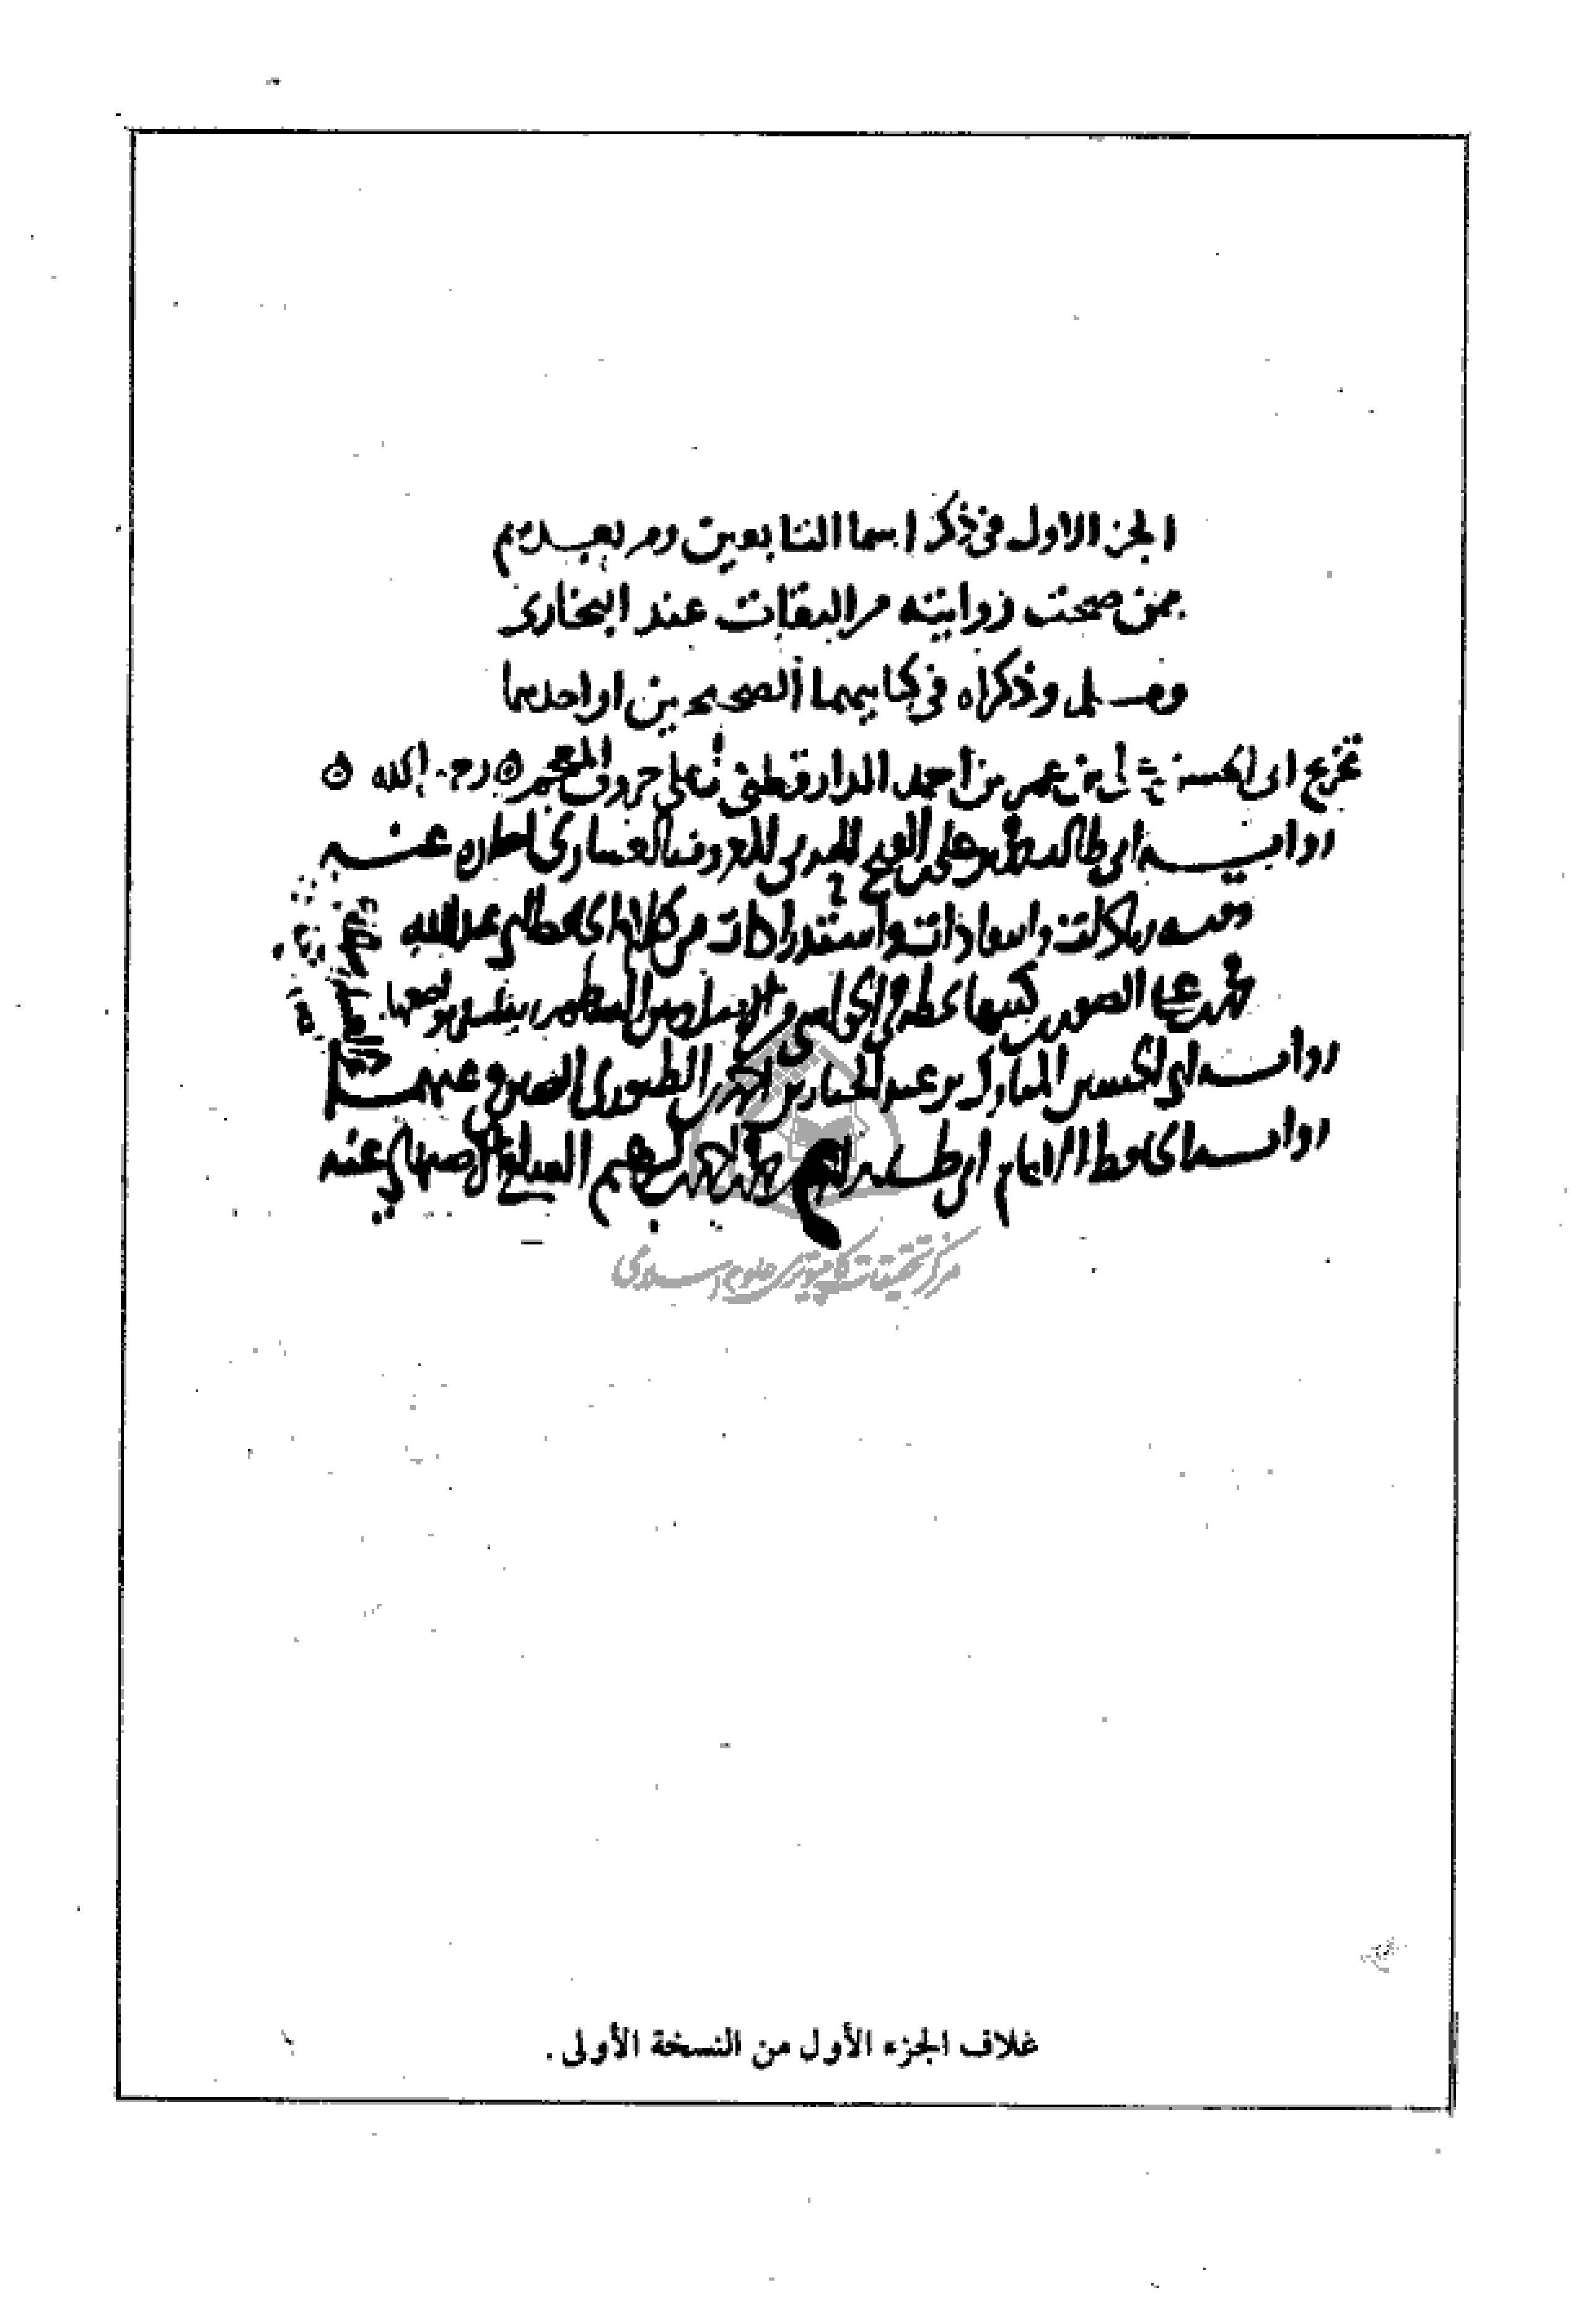 الجز الاول فى ذكر اسما التابعين ومر بعدهم
ممن صحت روايته مر الثقات عند البخارى
ومسلم وذكراه فى كتابيهما الصحيحين او احدهما
تخريج ابى الحسن على بن عمر بن احمد الدارقطنى على حروف المعجم رحمه الله
روايه ابى طالب محمد بن على بن الفتح الحربى المعروف بالعشارى اجازه عنه
وفيه زيادات واستدراكات من كلام الحافظ ابى عبد الله
محمد بن على الصورى كتبها بخطه
روايه ابى الحسين المبارك بن عبد الجبار بن احمد الصيرفى عنهما
روايه الحافظ الامام ابى طاهر احمد بن محمد بن احمد بن ابرهيم السلفى الاصبهانى عنه
مركز تحقيقات كامپيوترى علوم اسلامى
غلاف الجزء الأول من النسخة الأولى .